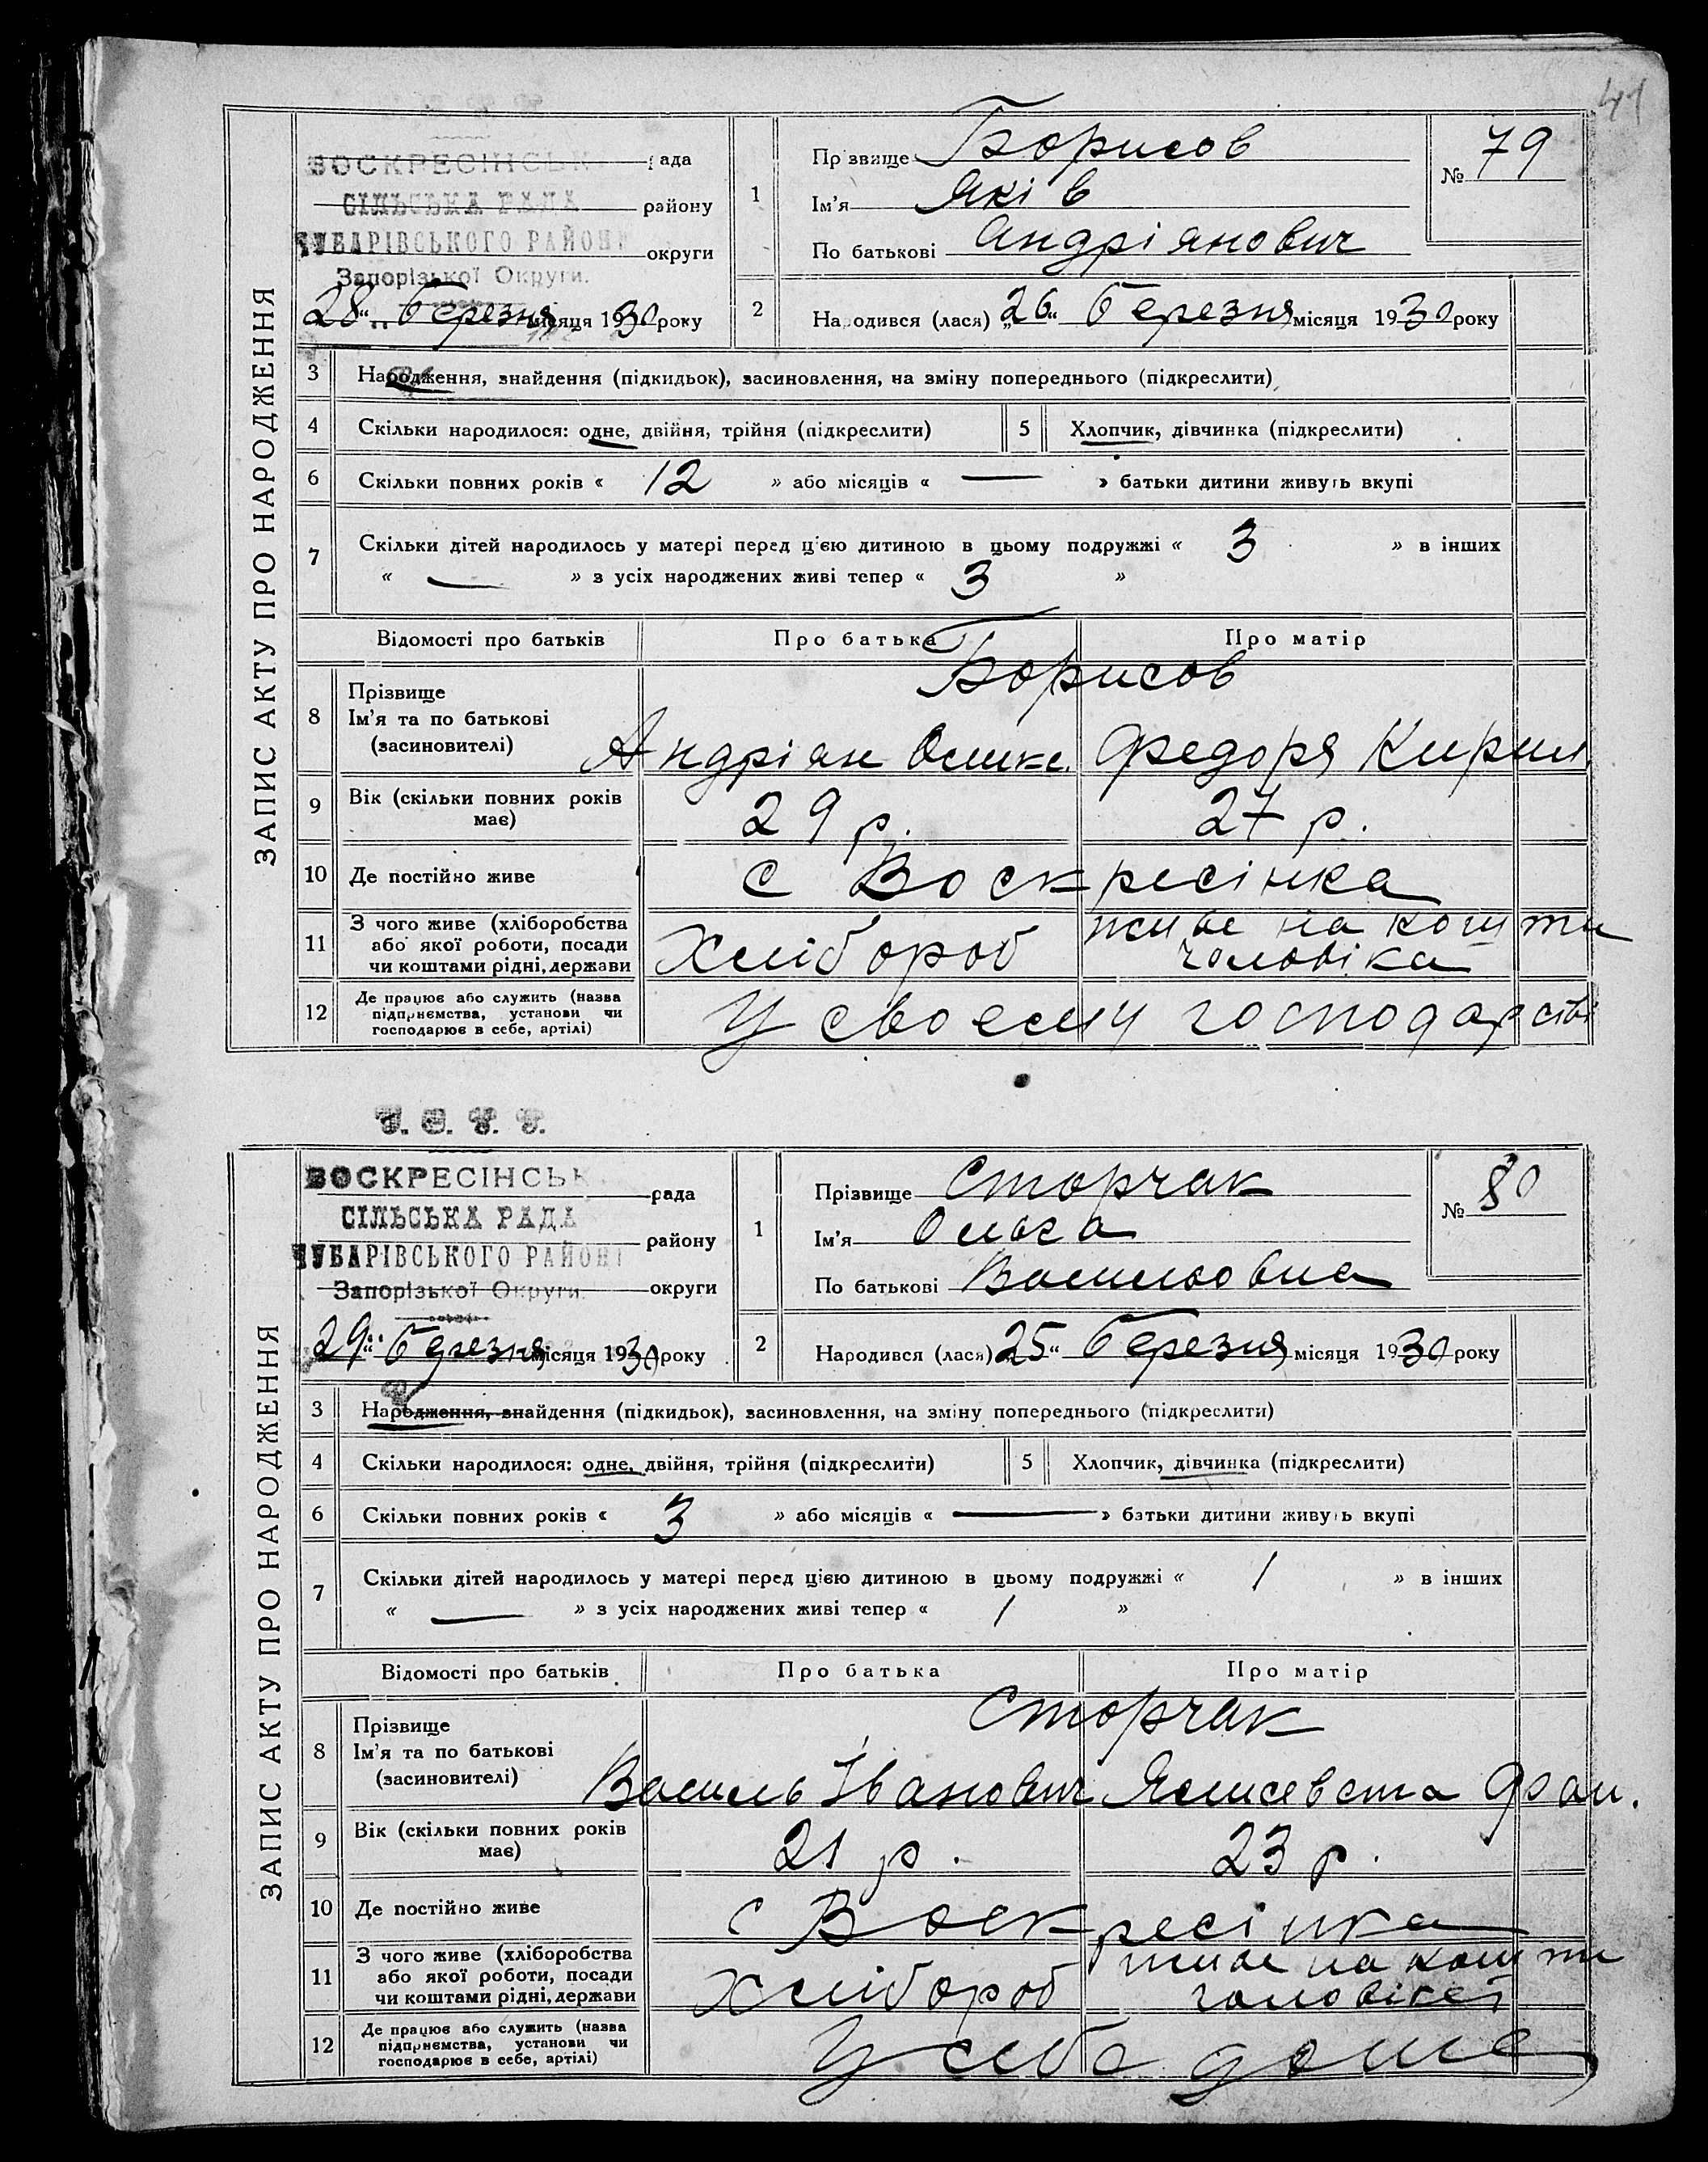 41
ЗАПИС АКТУ ПРО НАРОДЖЕННЯ
ВОСКРЕСІНСЬК рада
СІЛЬСЬКА РАДА району
ЧУБАРІВСЬКОГО РАЙОНУ округи
Запорізької Округи.
28 березня місяця 1930 року
1 Прізвище Борисов
Ім'я Які в
По батькові Андріянович
№ 79
2 Народився (лася) „26“ березня місяця 1930 року
3 Народження, знайдення (підкидьок), засиновлення, на зміну попереднього (підкреслити)
4 Скільки народилося: одне, двійня, трійня (підкреслити) 5 Хлопчик, дівчинка (підкреслити)
6 Скільки повних років « 12 » або місяців « — » батьки дитини живуть вкупі
7 Скільки дітей народилось у матері перед цією дитиною в цьому подружжі « 3 » в інших
« — » з усіх народжених живі тепер « 3 »
Відомості про батьків Про батька Про матір
8 Прізвище
Ім'я та по батькові
(засиновителі)
Борисов
Андріян Федоря Кирил.
9 Вік (скільки повних років
має)
29 р. 27 р.
10 Де постійно живе с Воскресінка
11 З чого живе (хліборобства
або якої роботи, посади
чи коштами рідні, держави
Хлібороб живе на кошти
чоловіка
12 Де працює або служить (назва
підприємства, установи чи
господарює в себе, артілі)
У своєму господарстві
У. С. Р. Р.
ЗАПИС АКТУ ПРО НАРОДЖЕННЯ
ВОСКРЕСІНСЬК рада
СІЛЬСЬКА РАДА району
ЧУБАРІВСЬКОГО РАЙОНУ округи
Запорізької Округи.
29 березня місяця 1930 року
1 Прізвище Сторчак
Ім'я Ольга
По батькові Васильовна
№ 80
2 Народився (лася) „25“ березня місяця 1930 року
3 Народження, знайдення (підкидьок), засиновлення, на зміну попереднього (підкреслити)
4 Скільки народилося: одне, двійня, трійня (підкреслити) 5 Хлопчик, дівчинка (підкреслити)
6 Скільки повних років « 3 » або місяців « — » батьки дитини живуть вкупі
7 Скільки дітей народилось у матері перед цією дитиною в цьому подружжі « 1 » в інших
« — » з усіх народжених живі тепер « 1 »
Відомості про батьків Про батька Про матір
8 Прізвище
Ім'я та по батькові
(засиновителі)
Сторчак
Василь Іванович Ялисевета
9 Вік (скільки повних років
має)
21 р. 23 р.
10 Де постійно живе с Воскресінка
11 З чого живе (хліборобства
або якої роботи, посади
чи коштами рідні, держави
Хлібороб живе на кошти
чоловіка
12 Де працює або служить (назва
підприємства, установи чи
господарює в себе, артілі)
У себе дома